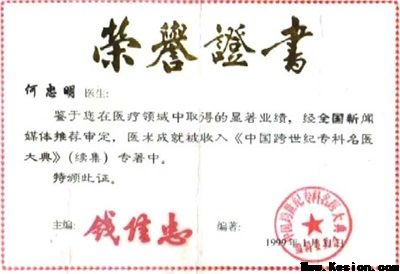 荣誉證書
何忠明 医生:
鉴于您在医疗领域中取得的显著业绩，经全国新闻
媒体推荐审定，医术成就被收入《中国跨世纪专科名医
大典》(续集) 专著中。
特颁此证。
主编: 钱佳忠 编著:
1999年1月
Www.Kesion.com